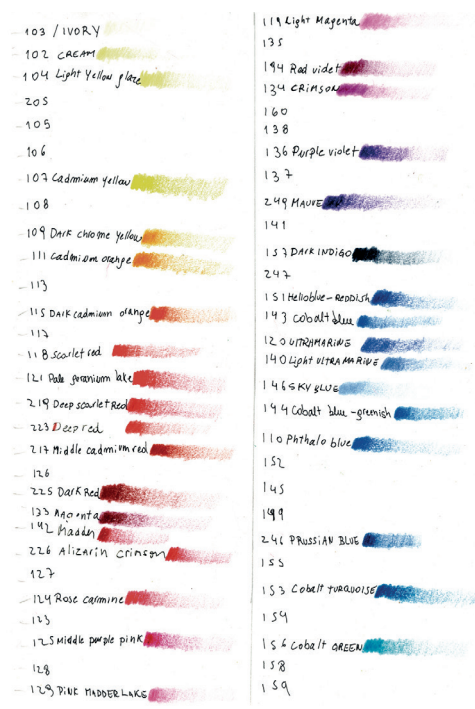 103 / IVORY
102 CREAM
104 Light Yellow glaze
205
105
106
107 Cadmium yellow
108
109 DARK chrome yellow
111 Cadmium orange
113
115 DARK cadmium orange
117
118 scarlet red
121 Pale geranium lake
219 Deep scarlet Red
223 Deep red
217 Middle cadmium red
126
225 DARK Red
133 MAGENTA
142 Madder
226 Alizarin crimson
127
124 Rose carmine
123
125 Middle purple pink
128
129 PINK MADDER LAKE
119 Light Magenta
135
194 Red violet
134 CRIMSON
160
138
136 Purple violet
137
249 MAUVE
141
157 DARK INDIGO
247
151 Helioblue-REDDISH
143 Cobalt blue
120 ULTRAMARINE
140 Light ULTRAMARINE
146 SKY BLUE
144 Cobalt blue-greenish
110 Phthalo blue
152
145
149
246 PRUSSIAN BLUE
155
153 Cobalt TURQUOISE
154
156 Cobalt GREEN
158
159